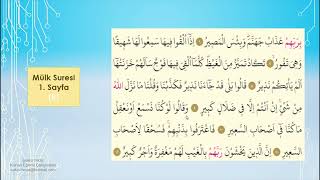 Mülk Suresi
1. Sayfa
بِرَبِّهِمْ عَذَابُ جَهَنَّمَ وَبِئْسَ الْمَصِيرُ اِذَٓا اُلْقُوا فِيهَا سَمِعُوا لَهَا شَهِيقًا
وَهِيَ تَفُورُ تَكَادُ تَمَيَّزُ مِنَ الْغَيْظِ كُلَّمَٓا اُلْقِيَ فِيهَا فَوْجٌ سَاَلَهُمْ خَزَنَتُهَٓا
اَلَمْ يَأْتِكُمْ نَذِيرٌ قَالُوا بَلٰى قَدْ جَٓاءَنَا نَذِيرٌ فَكَذَّبْنَا وَقُلْنَا مَا نَزَّلَ اللّٰهُ
مِنْ شَيْءٍ اِنْ اَنْتُمْ اِلَّا فِي ضَلَالٍ كَبِيرٍ وَقَالُوا لَوْ كُنَّا نَسْمَعُ اَوْ نَعْقِلُ
مَا كُنَّا فِٓي اَصْحَابِ السَّعِيرِ فَاعْتَرَفُوا بِذَنْبِهِمْ فَسُحْقًا لِاَصْحَابِ
السَّعِيرِ اِنَّ الَّذِينَ يَخْشَوْنَ رَبَّهُمْ بِالْغَيْبِ لَهُمْ مَغْفِرَةٌ وَاَجْرٌ كَبِيرٌ